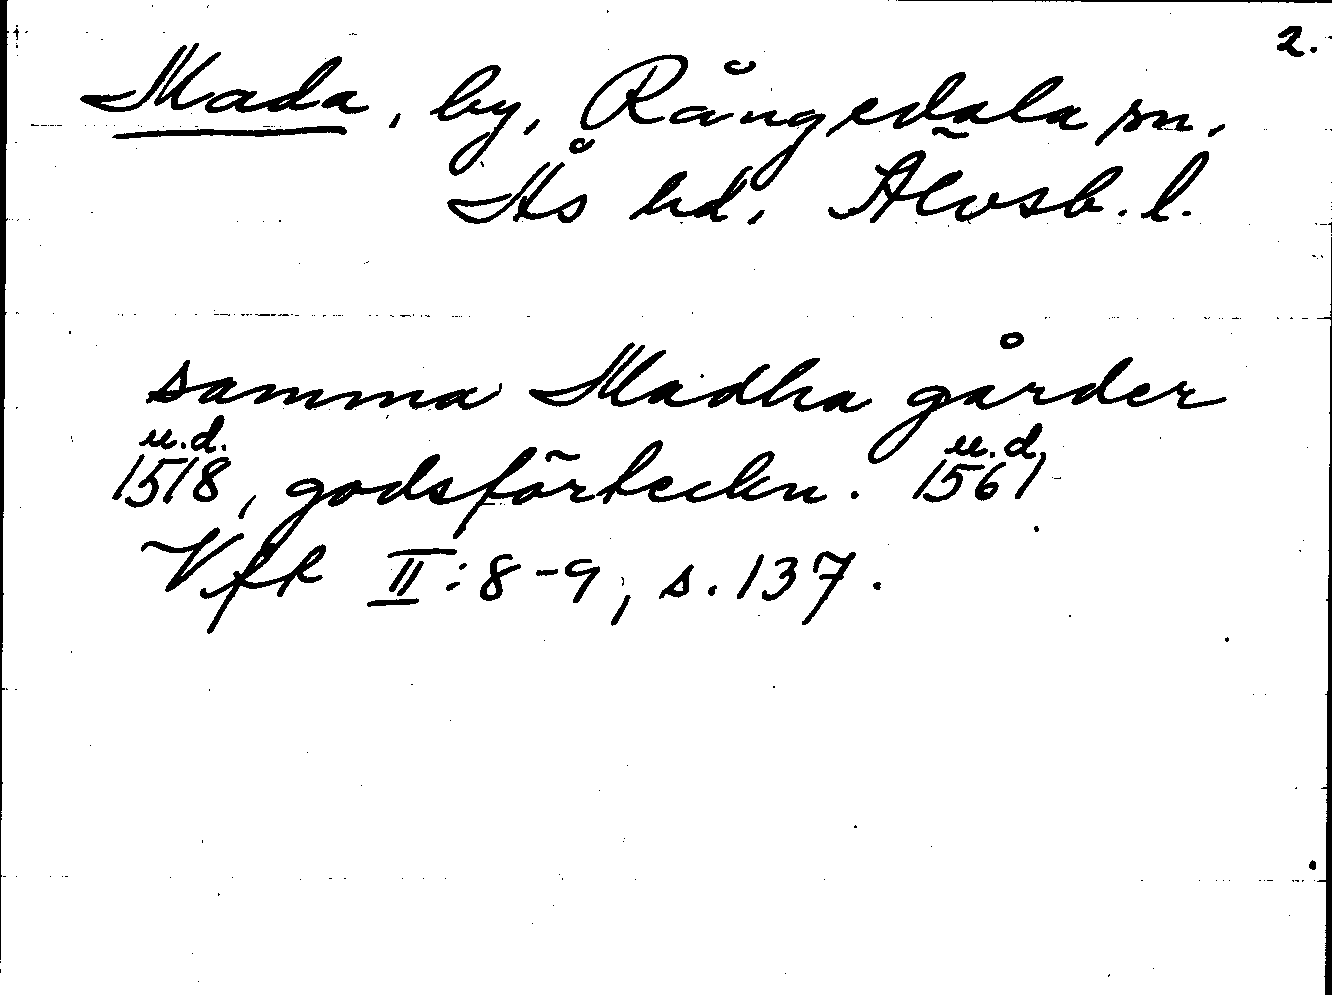 2.
Mada, by, Rångedala sn.
Ås hd, Älvsb. l.
samma Madha gårder
u.d. u.d.
1518, godsförteckn. 1561
Vfr II:8-9, s. 137.